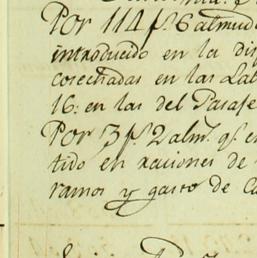 Por 114 f.s 6 almud
introducido en la di
cosechadas en las Lab
16: en las del Parase
Por 3 f.s 2 alm.s q.e en
tido en raciones de
ramos y gasto de Ca